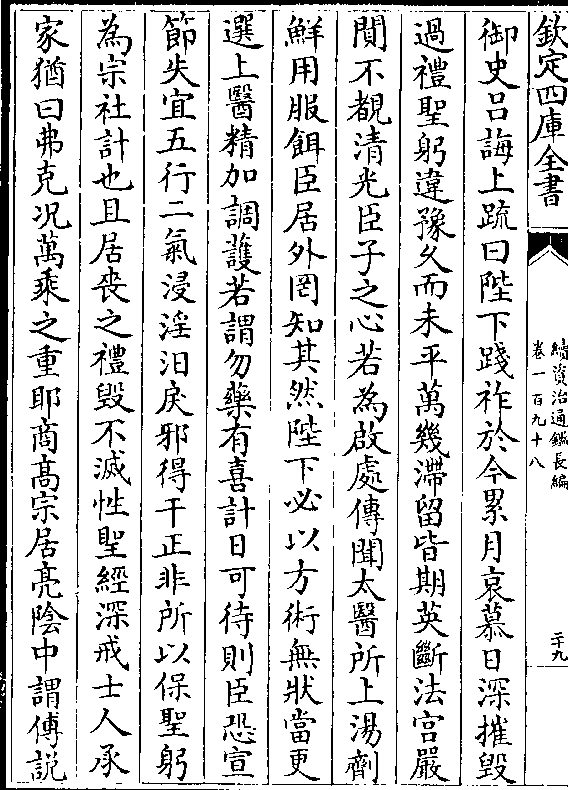 欽定四庫全書
續資治通鑑長編
卷一百九十八
二十九
御史吕誨上疏曰陛下踐祚於今累月哀慕日深摧毀
過禮聖躬違豫久而未平萬幾滯留皆期英斷法宫嚴
閒不覩清光臣子之心若為啟處傳聞太醫所上湯劑
鮮用服餌臣居外罔知其然陛下必以方術無狀當更
選上醫精加調䕶若謂勿藥有喜計日可待則臣恐宣
節失宜五行二氣浸淫汨戾邪得干正非所以保聖躬
為宗社計也且居喪之禮毀不滅性聖經深戒士人承
家猶曰弗克况萬乘之重耶商髙宗居亮隂中謂傅説